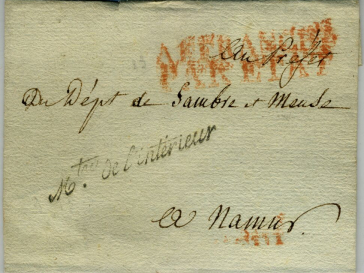 AFFRANCHI
PAR ETAT
Au Préfet
Du Dépt de Sambre et Meuse
M.tère de l'intérieur
a Namur.